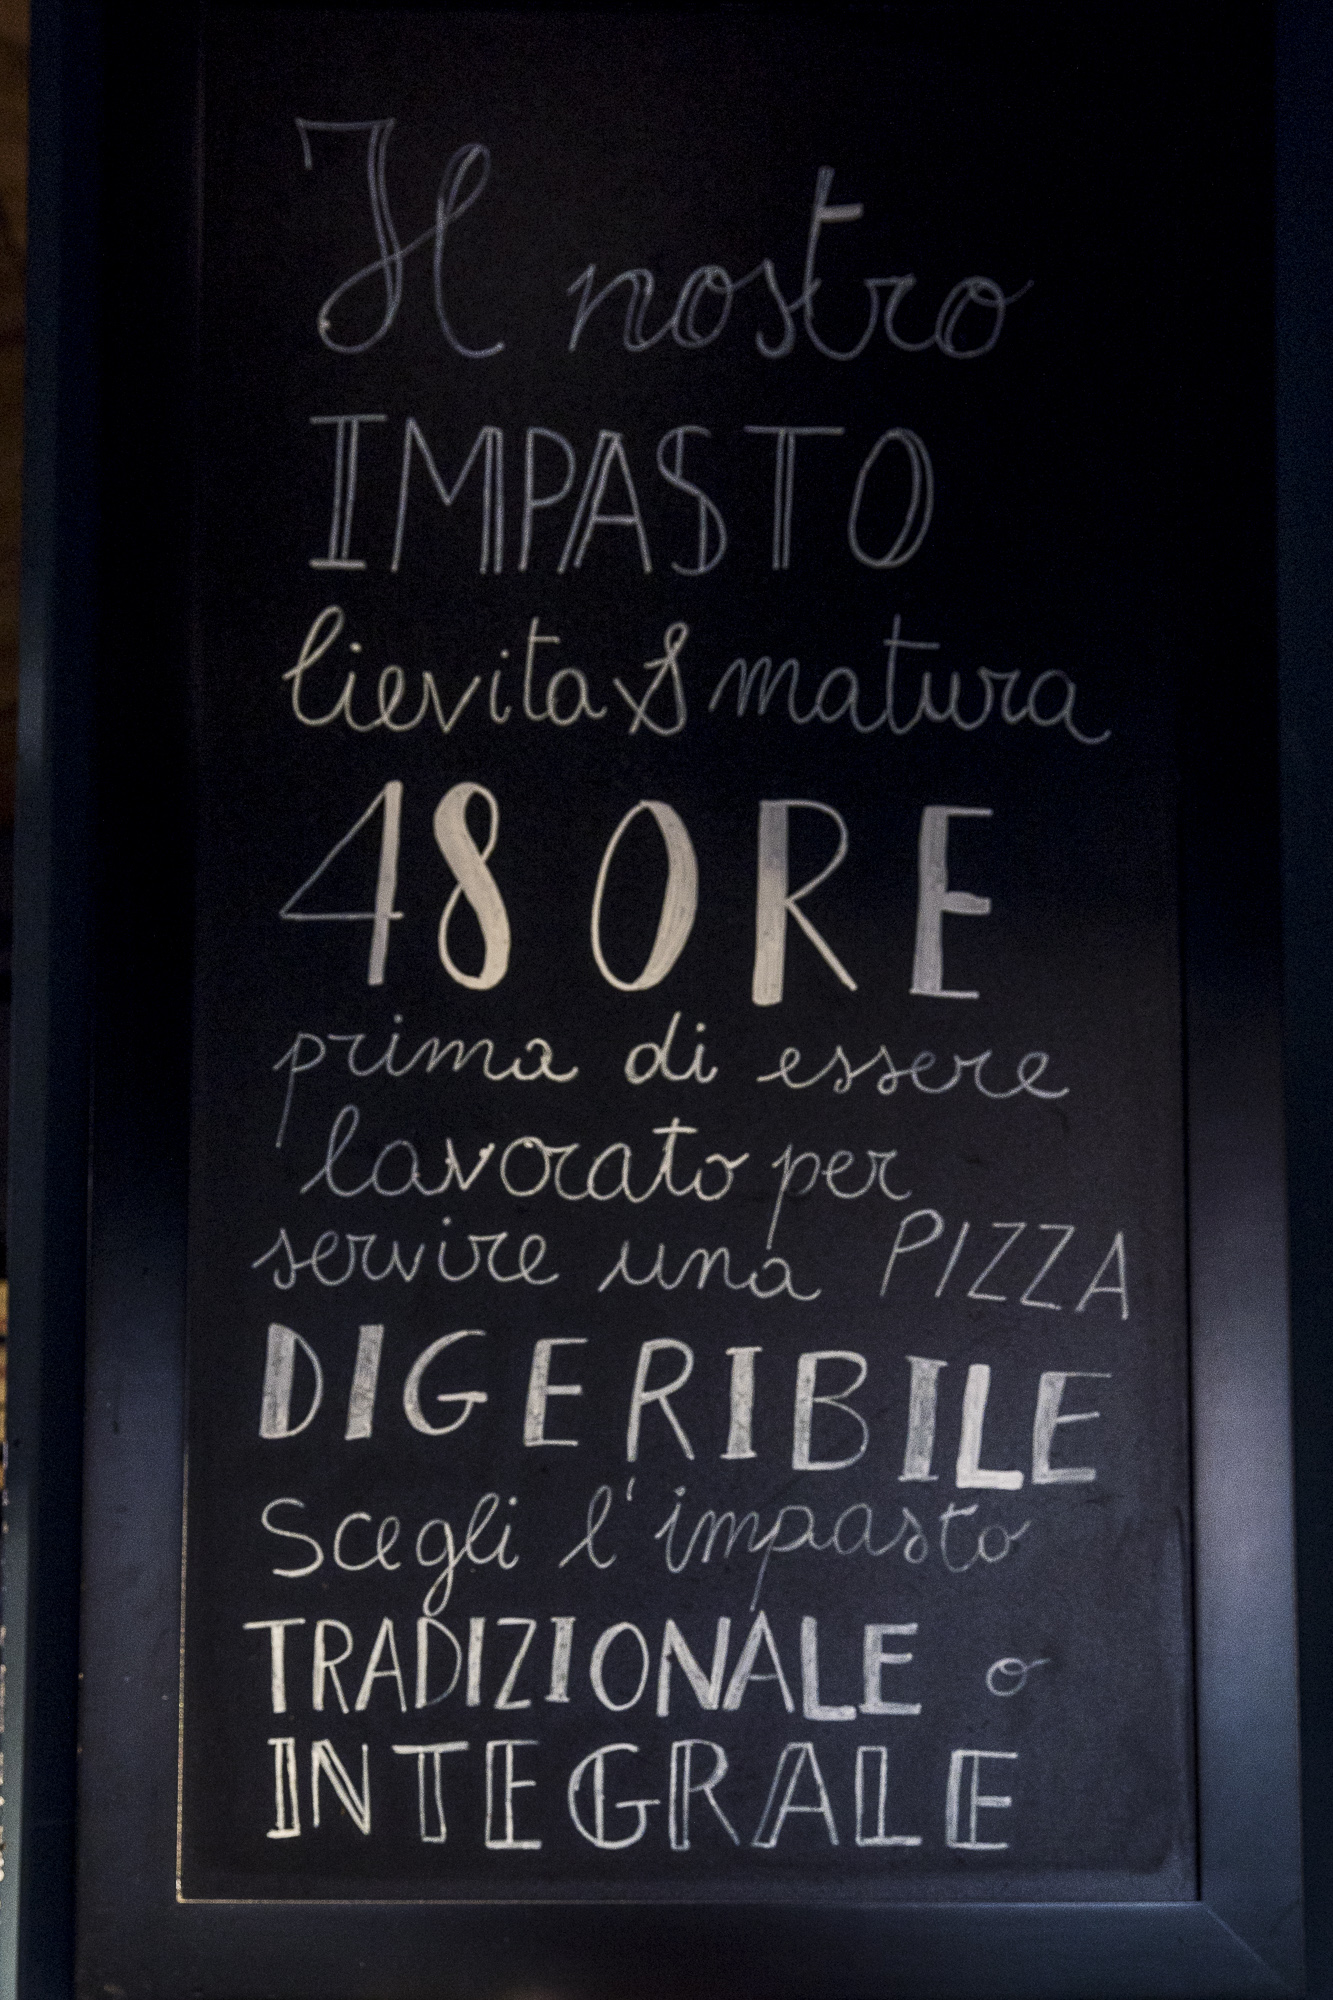 Il nostro
IMPASTO
lievita & matura
48 ORE
prima di essere
lavorato per
servire una PIZZA
DIGERIBILE
Scegli l'impasto
TRADIZIONALE o
INTEGRALE